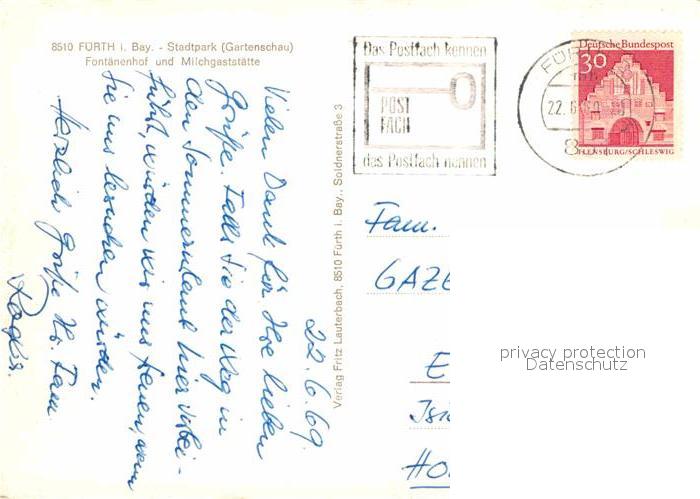 8510 FÜRTH i. Bay. - Stadtpark (Gartenschau)
Fontänenhof und Milchgaststätte
22.6.69
Vielen Dank für Ihre lieben
Grüße. Falls Sie der Weg in
den Sommerurlaub hier vorbei-
führt, würden wir uns freuen, wenn
Sie uns besuchen würden.
Herzlich Grüße Ihr. Fam.
Verlag Fritz Lauterbach, 8510 Fürth i. Bay., Soldnerstraße 3
Das Postfach kennen
POST
FACH
das Postfach nennen
FÜR
22.6.
8
Deutsche Bundespost
30
FLENSBURG/SCHLESWIG
Fam.
GAZE
E
Isi
HO
privacy protection
Datenschutz